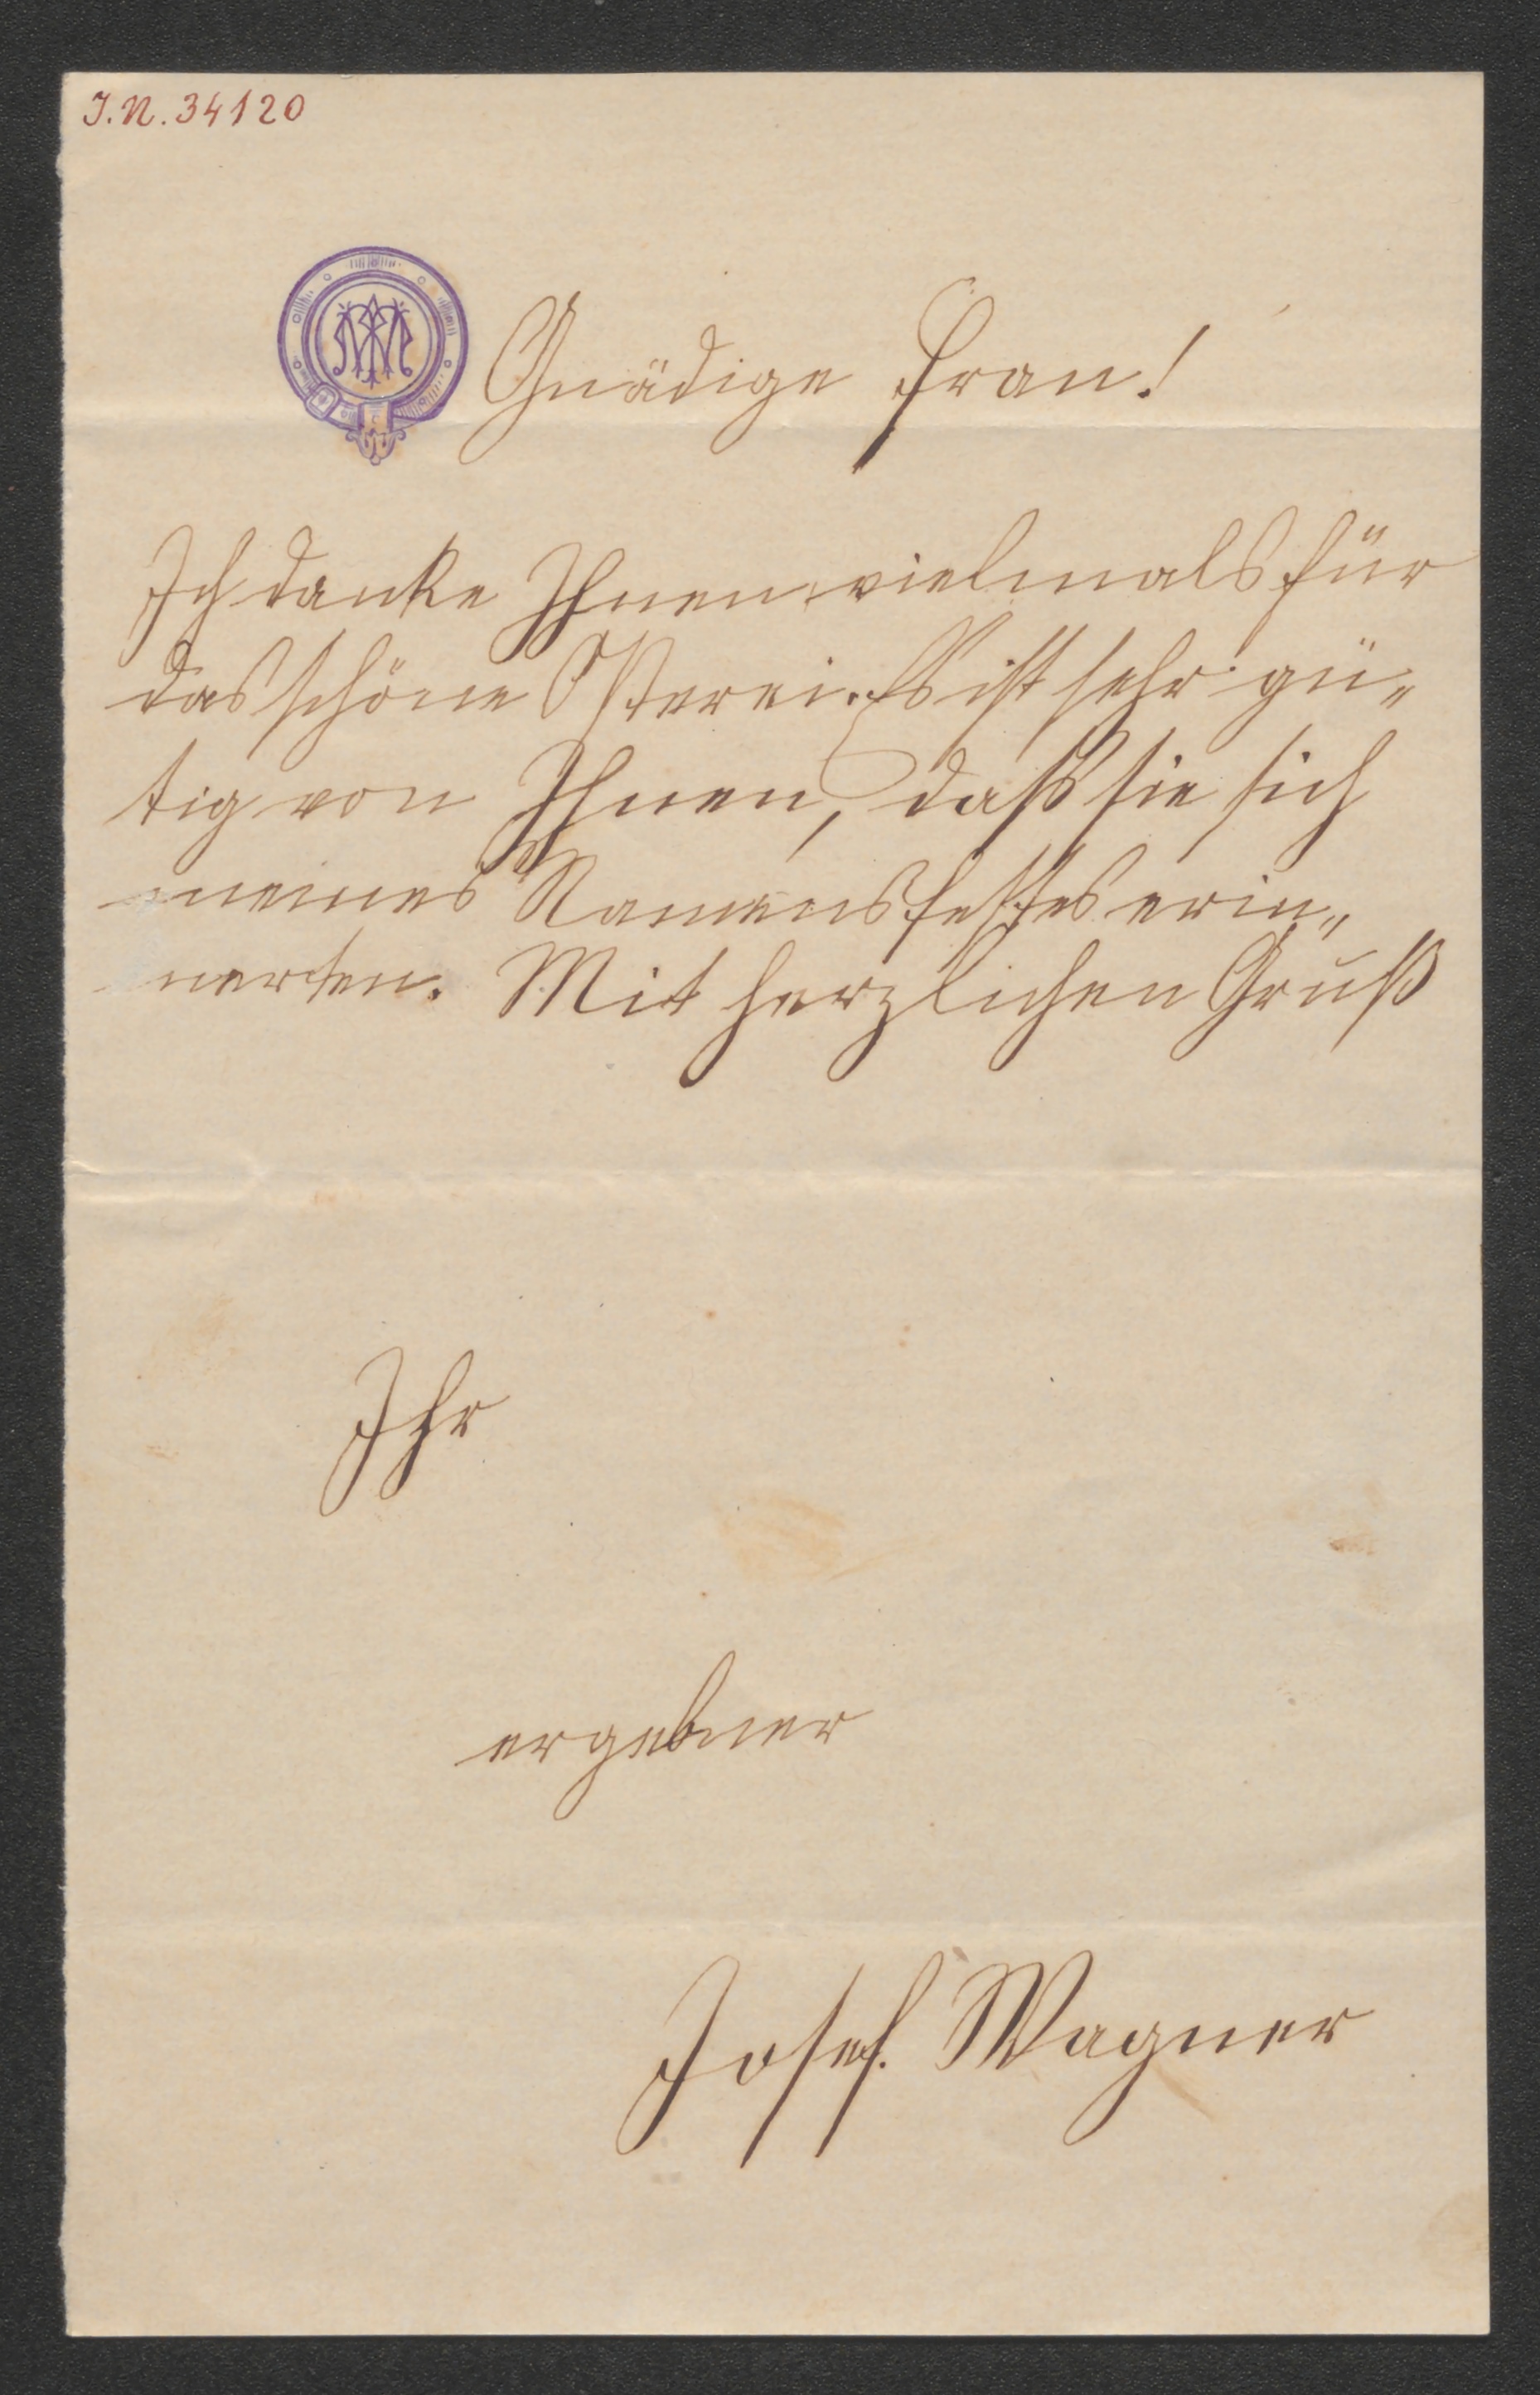 I.N. 34120
Gnädige Frau!
Ich danke Ihnen vielmals für
das schöne Osterei. Es ist sehr gü„
tig von Ihnen, daß sie sich
meines Namensfestes erin„
nerten. Mit herzlichen Gruß
Ihr
ergebner
Josef. Wagner